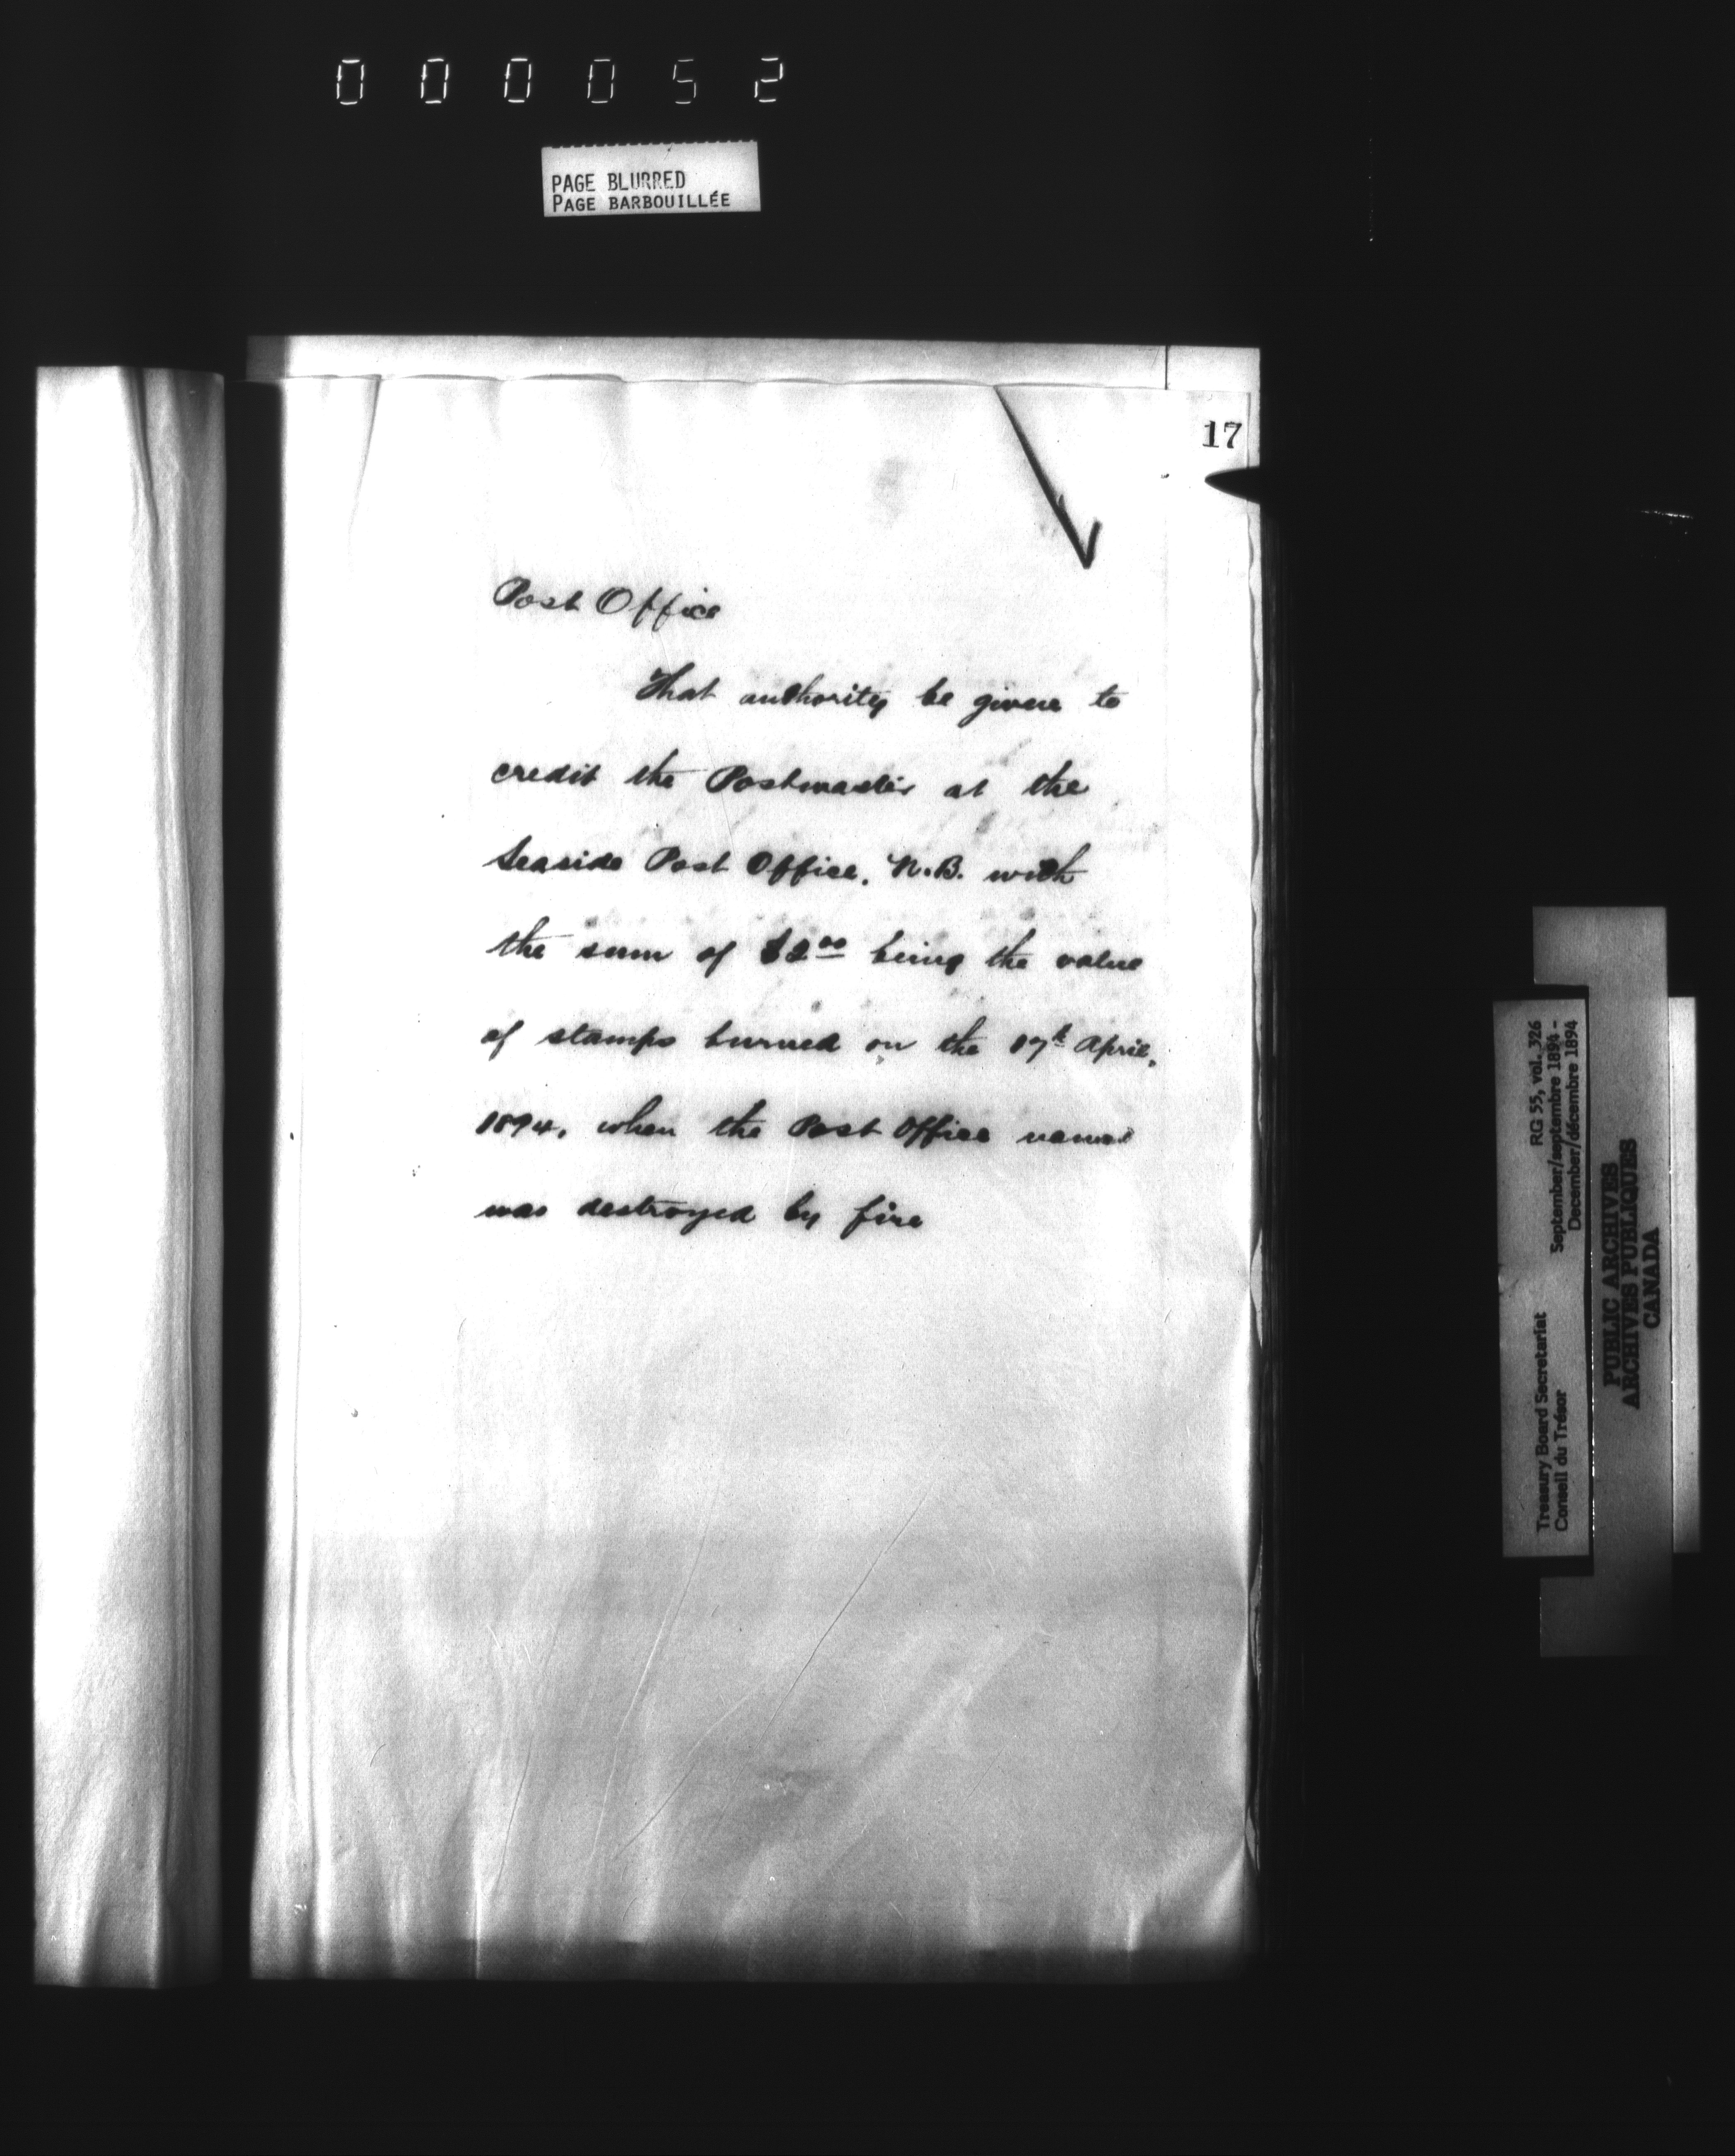 000052
PAGE BLURRED
PAGE BARBOUILLÉE
17
Post Office
That authority be given to
credit the Postmaster at the
Seaside Post Office, N.B. with
the sum of $2.00 being the value
of stamps burned on the 17th April,
1894, when the Post Office named
was destroyed by fire
Treasury Board Secretariat RG 55, vol. 326
Conseil du Trésor September/septembre 1894 -
December/décembre 1894
PUBLIC ARCHIVES
ARCHIVES PUBLIQUES
CANADA